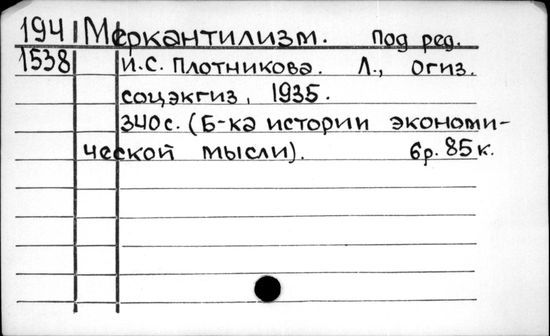 194 Меркантилизм. Под ред.
1538 И.С. Плотникова. Л., Огиз.
соцэкгиз, 1935.
340с. (Б-ка истории экономи-
ческой мысли). 6р. 85к.